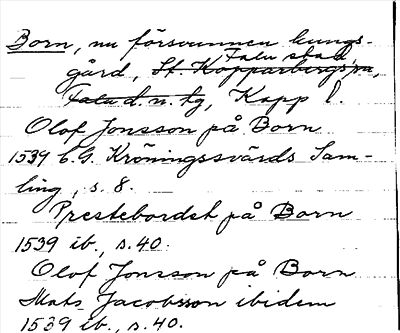 Born, nu försvunnen kungs-
Falu stad,
gård, St. Kopparbergs sn,
Falu d. n. tg, Kopp l.
Olof Jonsson på Born
1539 C.G. Kröningssvärds Sam-
ling, s. 8.
Prestebordet på Born
1539 ib., s. 40.
Olof Jonsson på Born
Mats Jacobsson ibidem
1539 ib., s. 40.